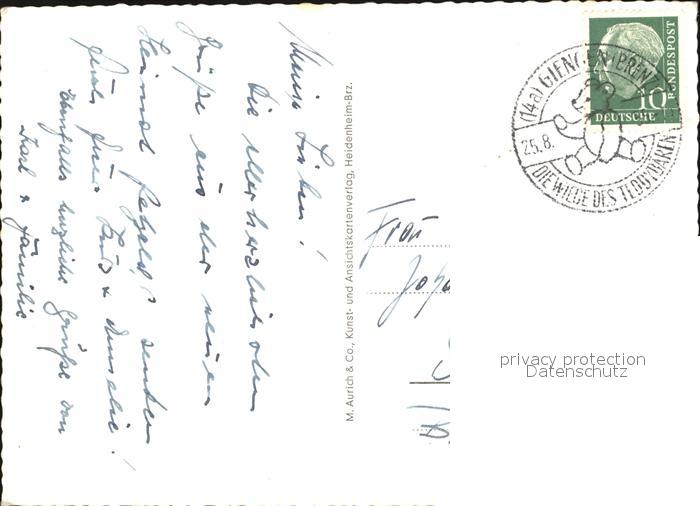 Meine Lieben!
Die allerherzlichsten
Grüße aus der neuen
Heimat senden
Euch Eure &
Ebenfalls herzliche Grüße von
Karl & Familie
M. Aurich & Co., Kunst- und Ansichtskartenverlag, Heidenheim-Brz.
Frau
DEUTSCHE BUNDESPOST
10
(14a) GIENGEN (BRENZ)
25.8.
DIE WIEGE DES TEDDYBÄREN
privacy protection
Datenschutz